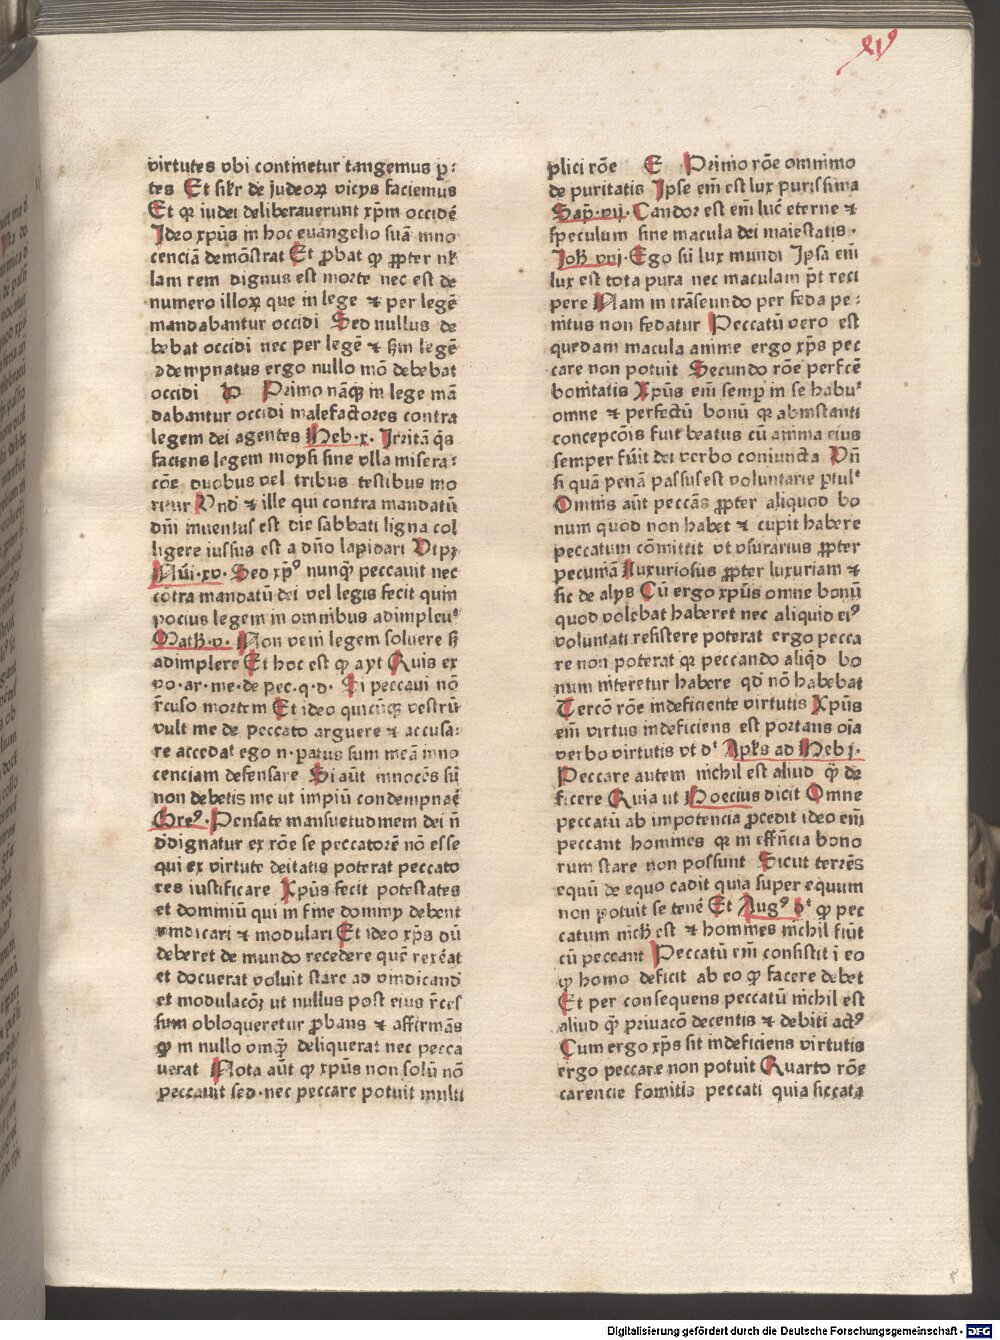 xvꝰ
virtutes vbi continetur tangemus p̲:
tes Et sil̓r de judeoꝝ vicys faciemus
Et qꝛ iudei deliberauerunt xp̄m occidē
Ideo xp̄us in hoc euangelio suā inno
cenciā demōstrat Et ꝓbat ꝙ ꝓpter nł
lam rem dignus est morte nec est de
numero illoꝝ que in lege ⁊ per legē
mandabantur occidi Sed nullus de
bebat occidi nec per legē ⁊ scd̓m legē
ↄdempnatus ergo nullo mō debebat
occidi D Primo nāqꝫ in lege mā
dabantur occidi malefactores contra
legem dei agentes Heb·x· Irritā q̄s
faciens legem moysi sine vlla misera:
cōe duobus vel tribus testibus mo
ritur Vnd̓ ⁊ ille qui contra mandatū
dn̄i inuentus est die sabbati ligna col
ligere iussus est a dn̄o lapidari
Nūi·xv· Sed xp̄ꝰ nunqꝫ̄ peccauit nec
cōtra mandatū dei vel legis fecit quin
pocius legem in omnibus adimpleuᵗ
Math·v· Non veni legem soluere ſꝫ
adimplere Et hoc est ꝙ ayt Quis ex
vo·ar·me·de pec·q·d· Si peccaui nō
r̄cuso mortem Et ideo quicūqꝫ vestrū
vult me de peccato arguere ⁊ accusa:
re accedat ego n·paratus sum meā inno
cenciam defensare Si aūt innocēs sū
non debetis me ut impiū condempnaē
Greꝰ·Pensate mansuetudinem dei n̄
dꝺignatur ex rōe se peccatorē nō esse
qui ex virtute deitatis poterat peccato
res iustificare Xp̄us fecit potestates
et dominiū qui in fine dominy debent
vindicari ⁊ modulari Et ideo xp̄s dū
deberet de mundo recedere quē rexēat
et docuerat voluit stare ad vindicandū
et modulacōꝫ ut nullus post eius r̄ces
sum obloqueretur ꝓbans ⁊ affirmās
ꝙ in nullo vmqꝫ̄ deliquerat nec pecca
uerat Nota aūt ꝙ xp̄us non solū nō
peccauit sed·nec peccare potuit multi
plici rōe E Primo rōe omnimo
de puritatis Ipse em̄ est lux purissima
Sap̄·vij·Candor est em̄ luc̄ eterne ⁊
speculum sine macula dei maiestatis·
Joh̄ viij·Ego sū lux mundi Ipsa em̄
lux est tota pura nec maculam p̄t reci
pere Nam in trāseundo per feda pe:
nitus non fedatur Peccatū vero est
quedam macula anime ergo xp̄s pec
care non potuit Secundo rōe perfcē
bonitatis Xp̄us em̄ semꝑ in se habuᵗ
omne ⁊ perfectū bonū qꝛ ab instanti
concepcōis fuit beatus cū anima eius
semper fūit dei verbo coniuncta Vn̄
si quā penā passus est voluntarie ꝑtulᵗ
Omnis aūt peccās ꝓpter aliquod bo
num quod non habet ⁊ cupit habere
peccatum cōmittit vt vsurarius ꝓpter
pecuniā luxuriosus ꝓpter luxuriam ⁊
sic de alys Cū ergo xp̄us omne bonū
quod volebat haberet nec aliquid eiꝰ
voluntati resistere poterat ergo pecca
re non poterat qꝛ peccando aliqd̓ bo
num niteretur habere qd̓ nō habebat
Tercō rōe indeficiente virtutis Xp̄us
em̄ virtus indeficiens est portans oīa
verbo virtutis vt d̓ʳ Apl̓s ad Heb j·
Peccare autem nichil est aliud qꝫ̄ de
ficere Quia ut Boecius dicit Omne
peccatū ab impotencia ꝓcedit ideo em̄
peccant homines qꝛ in effn̄cia bono
rum stare non possunt Sicut terrēs
equū de equo cadit quia super equum
non potuit se tenē Et Augꝰ dᵗ ꝙ pec
catum nich̄ est ⁊ homines nichil fiūt
cū peccant Peccatū em̄ consistit ī eo
ꝙ homo deficit ab eo ꝙ facere debet
Et per consequens peccatū nichil est
aliud qꝫ̄ priuacō decentis ⁊ debiti actꝰ
Cum ergo xp̄s sit indeficiens virtutis
ergo peccare non potuit Quarto rōe
carencie fomitis peccati quia siccata
Digitalisierung gefördert durch die Deutsche Forschungsgemeinschaft - DFG